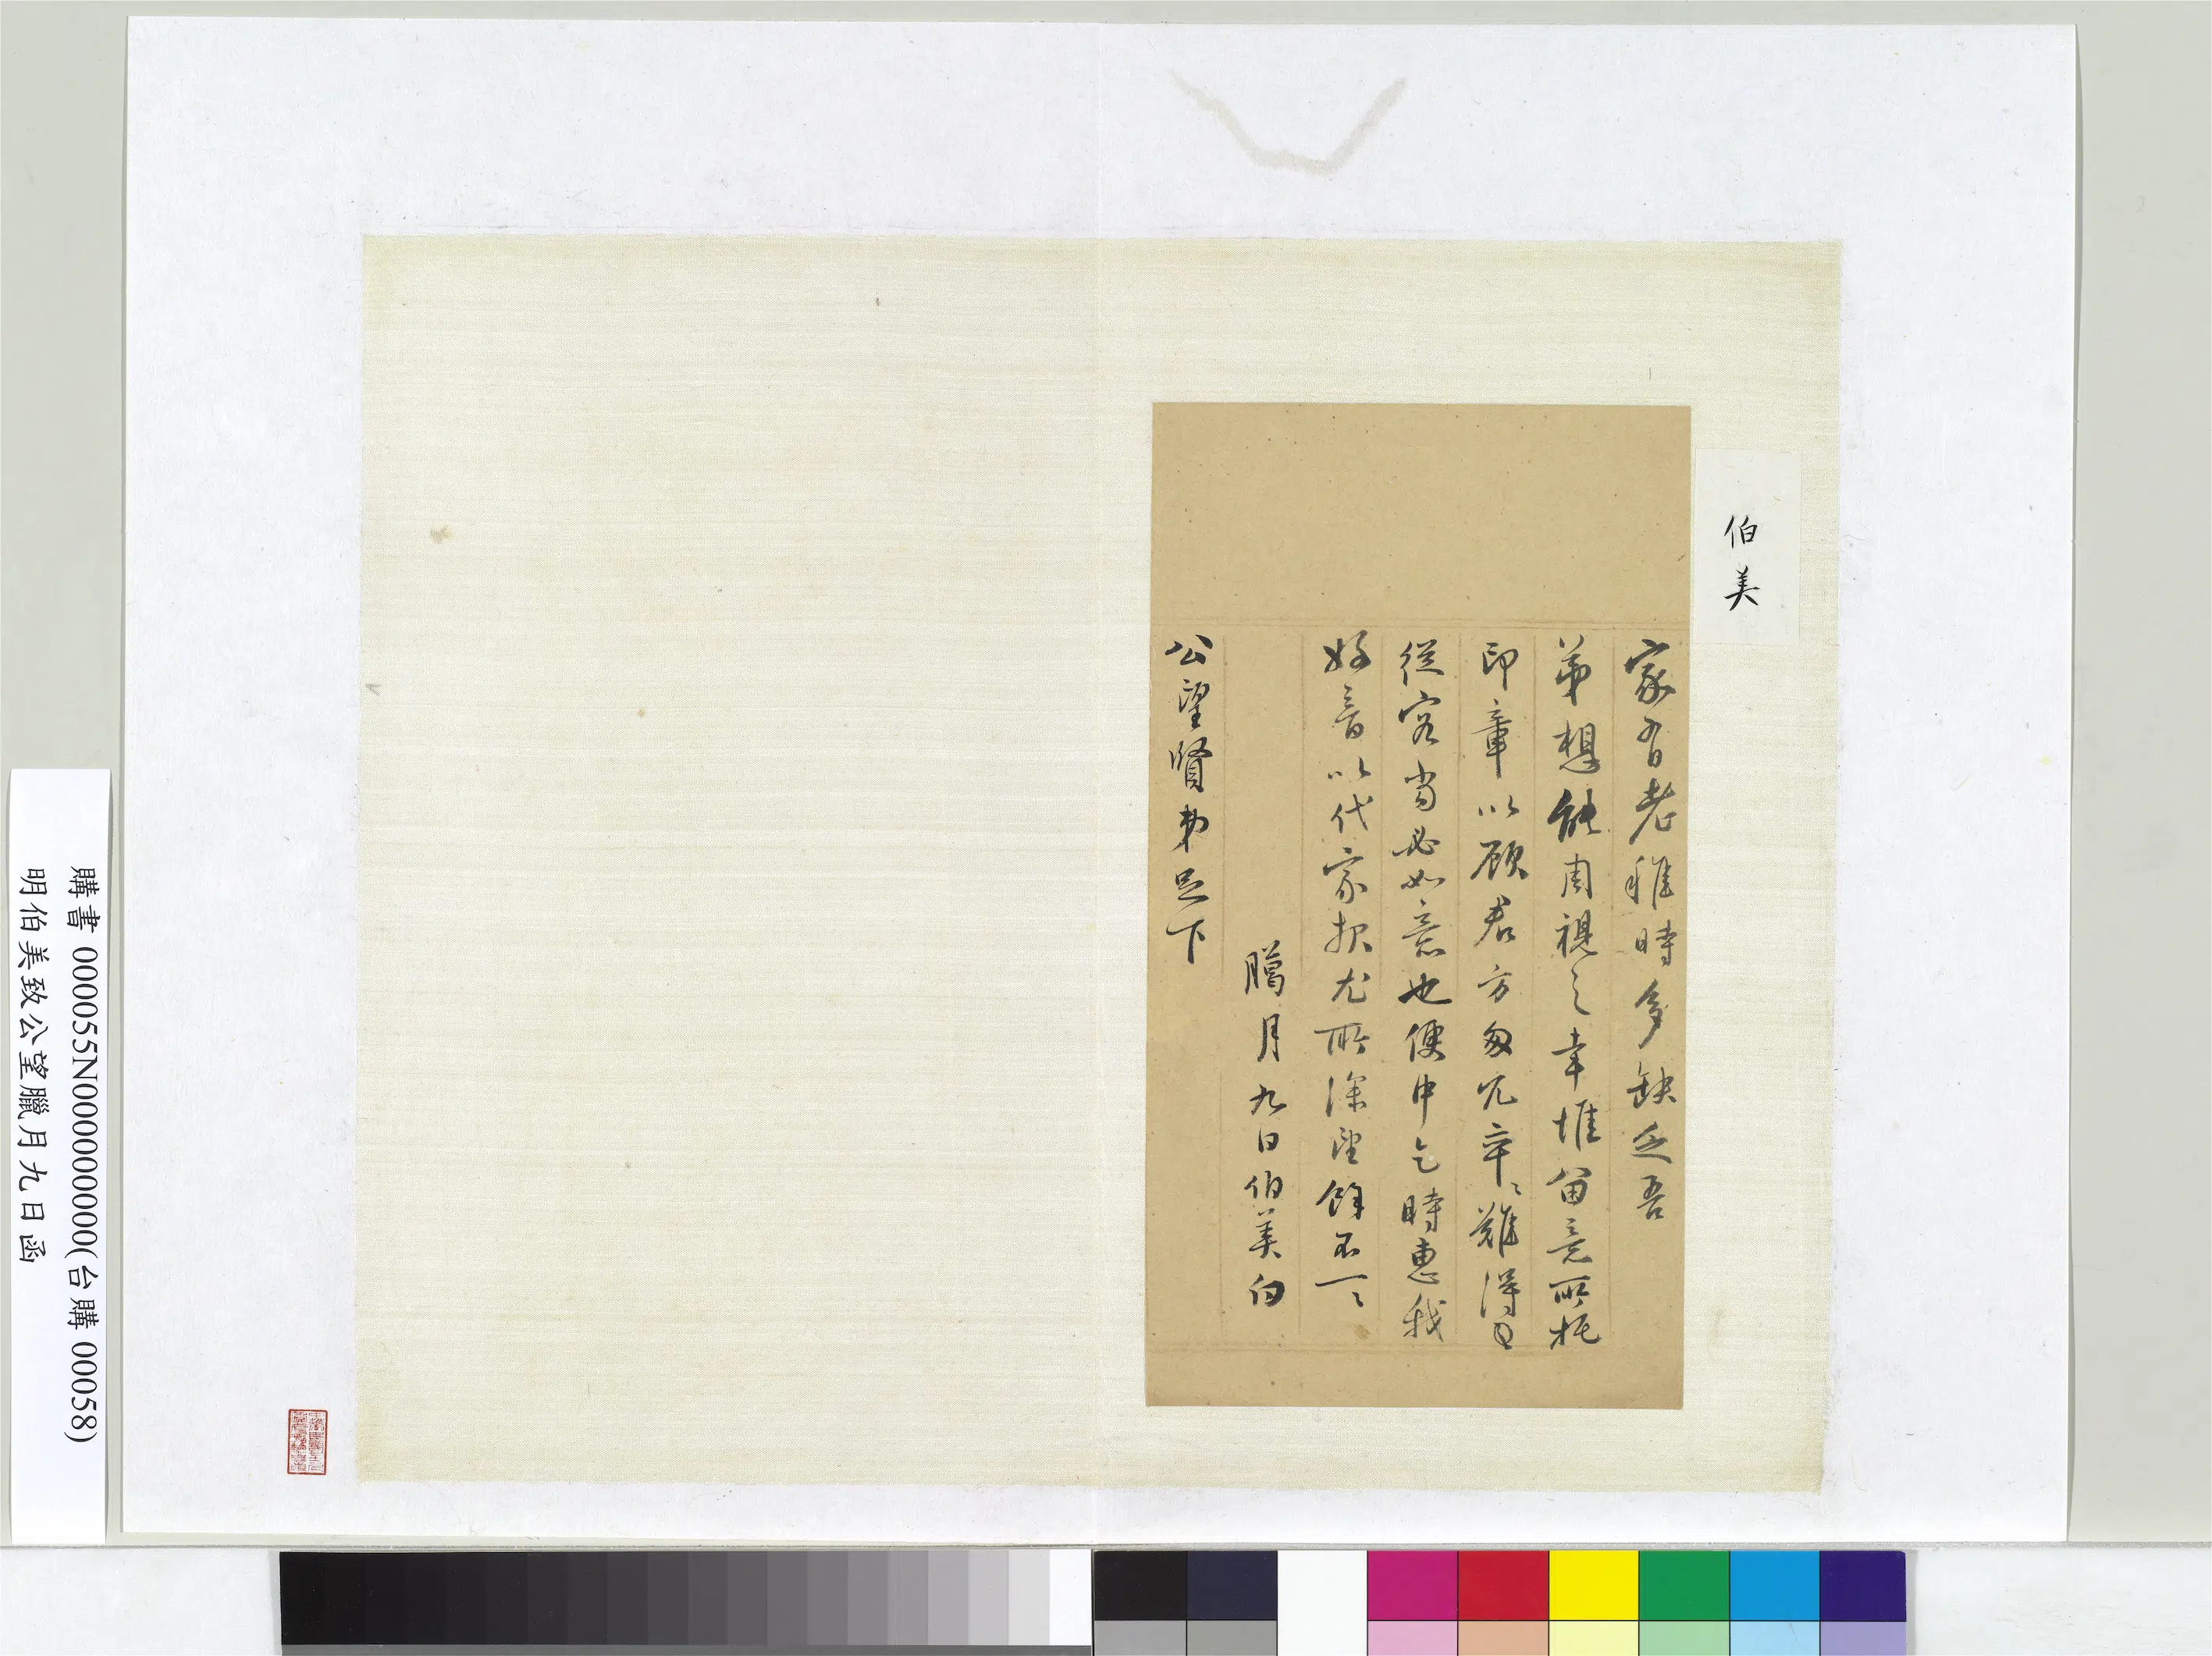 伯美
家有老稚時多缺乏吾
弟想能周視之幸惟留意所托
印章以顧君方匆冗卒〻難得
從容當必如意也便中乞時惠我
好音以代家報尤所深望餘不一〻
臈月九日伯美白
公望賢弟足下
購書 000055N000000000(台購 00058)
明伯美致公望臘月九日函